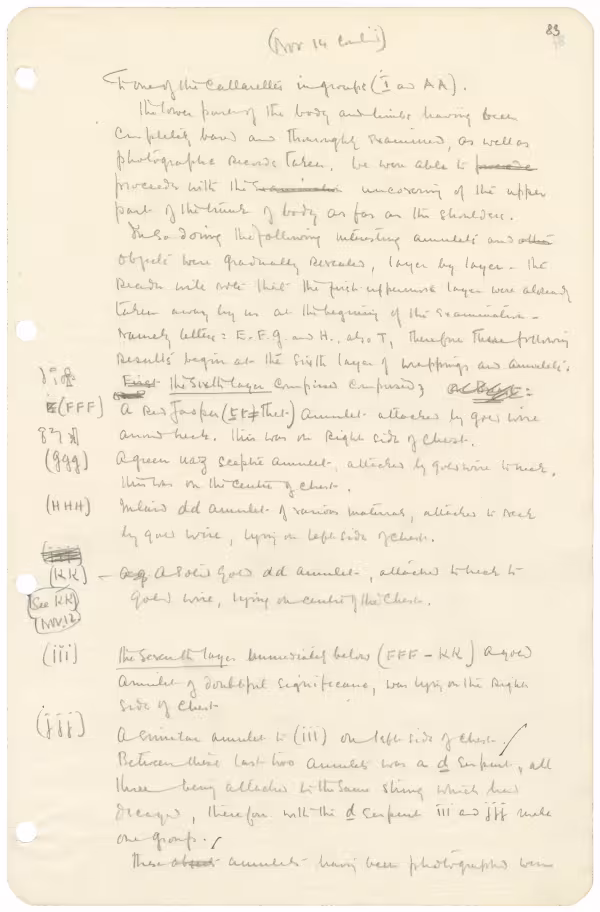 83
(Nov 14 Cont'd)
to one of the Collarettes in groups (I and AA).
The lower part of the body and limbs having been
completely bared and thoroughly examined, as well as
photographic records taken, we were able to procede
proceede with the Examination uncovering of the upper
part of the trunk of body as far as the shoulders.
In so doing the following interesting amulets and other
objects were gradually revealed, layer by layer - The
reader will note that the first uppermost layer were already
taken away by us at the beginning of the Examination -
namely letters: E. F. G. and H., also T, therefore these following
results begin at the Sixth layer of wrappings and amulets.
First the Sixth layer comprised comprised;
(FFF) A Red Jasper ( Thet) Amulet attached by gold wire
around neck. This was on Right side of Chest.
(ggg) A green uaz sceptre amulet, attached by gold wire to neck,
this was on the centre of chest.
(HHH) Inlaid dd amulet of various material, attached to neck
by gold wire, lying on left side of chest.
(KK) - A Solid Gold dd amulet, attached to neck to
(See KK) gold wire, lying on centre of the Chest.
Nov. 12
(iii) The Seventh layer immediately below (FFF - KK) A gold
Amulet of doubtful significance, was lying on the Right
side of Chest
(jjj) A similar amulet to (iii) on left side of chest.
Between these last two Amulets was a d Serpent, all
three being attached to the same string which had
decayed, therefore with the d Serpent iii and jjj make
one group.
These object amulets having been photographed were